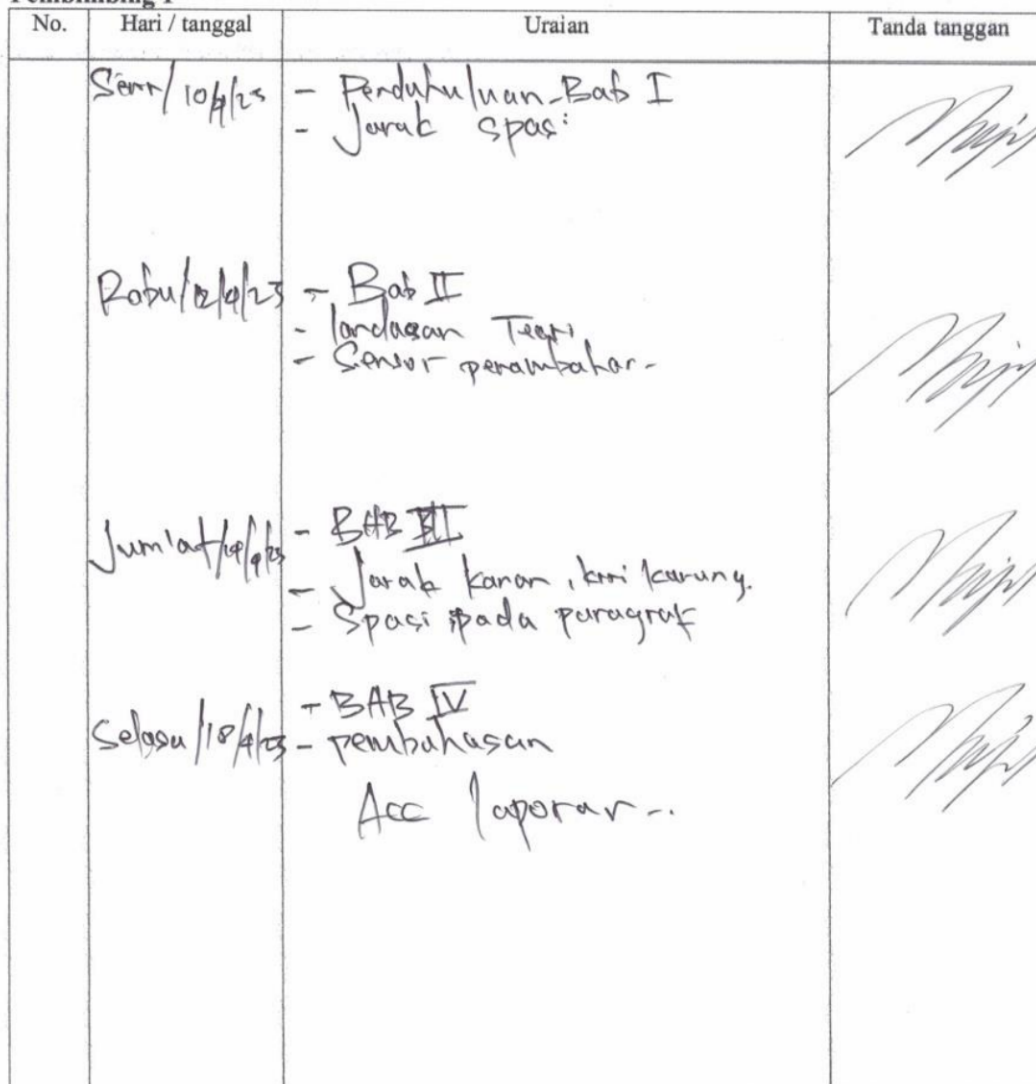 Pembimbing 1
No. Hari / tanggal Uraian Tanda tanggan
Senin/10/4/23 - Pendahuluan-Bab I
- Jarak spasi
Rabu/12/4/23 - Bab II
- landasan Teori
- Sensor penambahan-
Jum'at/14/4/23 - BAB III
- Jarak kanan, kiri kurung.
- Spasi pada paragraf
Selasa/18/4/23 - BAB IV
- pembahasan
Acc laporan--